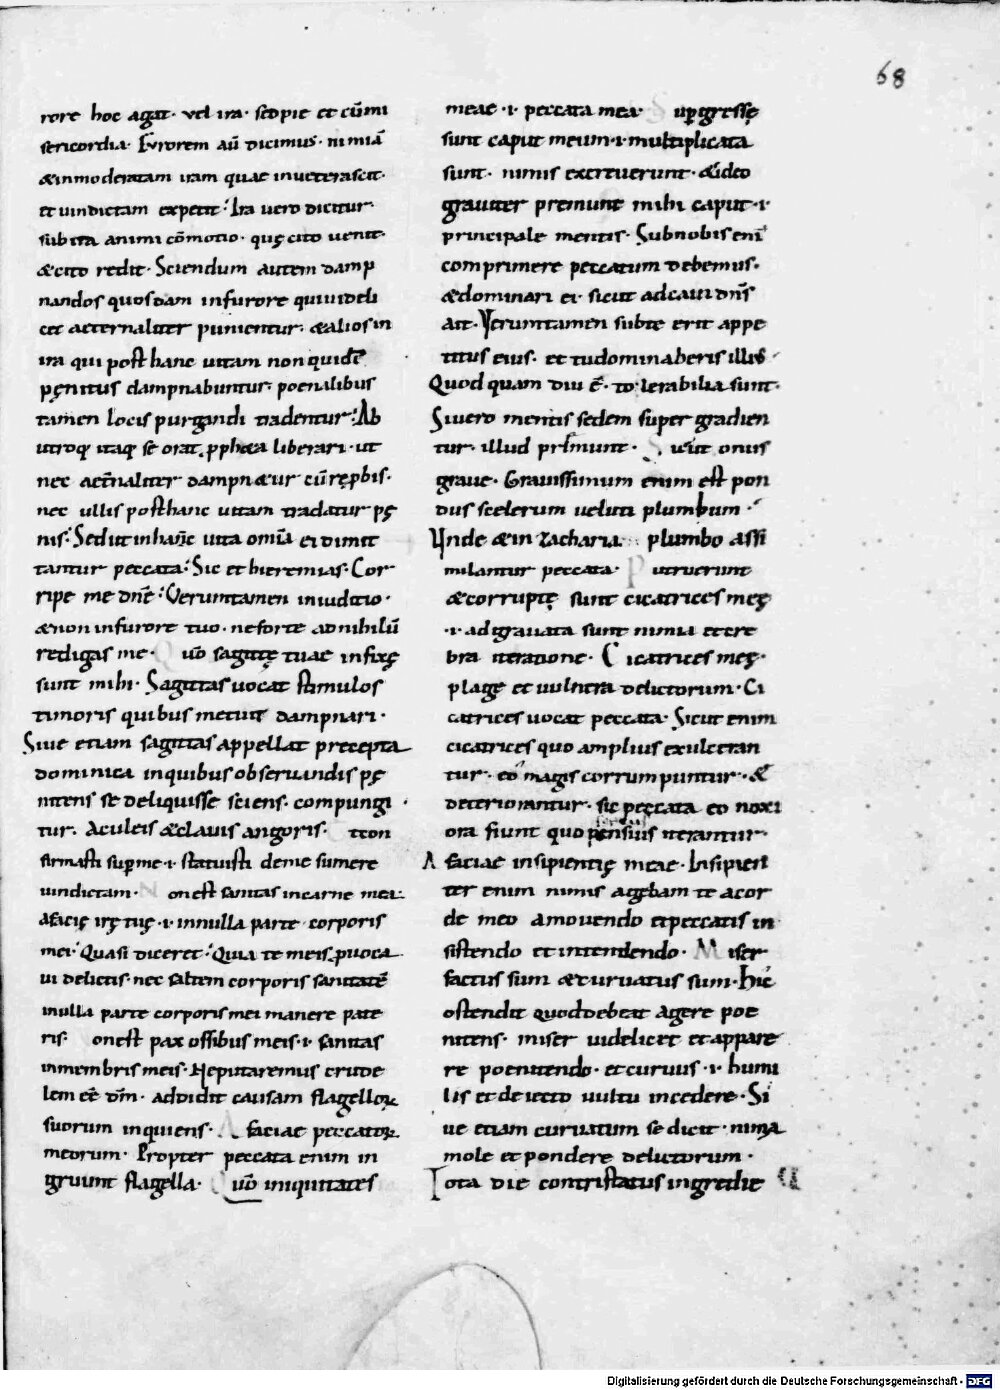 68
rore hoc agat· vel ira· sed pie et cū mi
sericordia· Furorem aū dicimus· nimiā
& inmoderatam iram quae inueterascit·
et uindictam expetit: Ira uero dicitur
subita animi cōmotio· quę cito uenit·
& cito redit· Sciendum autem damp
nandos quosdam in furore qui uideli
cet aeternaliter punientur· & alios in
ira qui post hanc uitam non quidē
pęnitus dampnabuntur· poenalibus
tamen locis purgandi tradentur: Ab
utroq; itaq; se orat ppheta liberari· ut
nec aet̄naliter dampn&ur cū rępbis·
nec ullis post hanc uitam tradatur pę
nis: Sed ut in hac uita omīa ei dimit
tantur peccata: Sic et hieremias· Cor
ripe me dn̄e: Verumtamen in iuditio·
& non in furore tuo· ne forte ad nihilū
redigas me· Qūo sagittę tuae infixę
sunt mihi· Sagittas uocat stimulos
timoris quibus metuit dampnari·
Siue etiam sagittas appellat precepta
dominica in quibus obseruandis pę
nitens se deliquisse sciens· compungi
tur· Aculeis & clauis angoris· tcon
firmasti sup me·i· statuisti de me sumere
uindictam· Non est sanitas in carne mea·
A facię irę tuę·i· in nulla parte corporis
mei: Quasi diceret: Quia te meis puoca
ui delictis· nec saltem corporis sanitatē
in ulla parte corporis mei manere pate
ris· on est pax ossibus meis·i· sanitas
in membris meis· Ne putaremus crude
lem eē dm̄· addidit causam flagellor
suorum inquiens· A faciae peccator
meorum· Propter peccata enim in
gruunt flagella· Qūo iniquitates
meae·i· peccata mea· Supgressę
sunt caput meum·i· multiplicata
sunt· nimis excreuerunt· & ideo
grauiter premunt mihi caput·i·
principale mentis· Sub nobis enī
comprimere peccatum debemus·
& dominari ei· sicut ad cain dn̄s
ait· Verumtamen subte erit appe
titus eius· et tu dominaberis illis·
Quod quam diu ē· tolerabilia sunt·
Si uero mentis sedem super gradien
tur· illud premunt· Sicut onus
graue· Grauissimum enim est pon
dus scelerum ueluti plumbum·
Unde & in zacharia plumbo assi
milantur peccata· Putruerunt
& corruptę sunt cicatrices meę
·i· adgrauata sunt nimia et cre
bra iteratione· Cicatrices meę·
plagę et uulnera delictorum· Ci
catrices uocat peccata· Sicut enim
cicatrices quo amplius exulceran
tur· eo magis corrumpuntur· &
deteriorantur· sic peccata eo noxi
ora fiunt quo iterantur·
A faciae insipientię meae· Insipien
ter enim nimis agebam te a cor
de meo amouendo et peccatis in
sistendo et intendendo· Miser
factus sum & curuatus sum· Hic
ostendit quod debeat agere poe
nitens· miser uidelicet et appare
re poenitendo· et curuus·i· humi
lis et deiecto uultu incedere· Si
ue etiam curuatum se dicit· nimia
mole et pondere delictorum·
Tota die contristatus ingredie
Digitalisierung gefördert durch die Deutsche Forschungsgemeinschaft · DFG